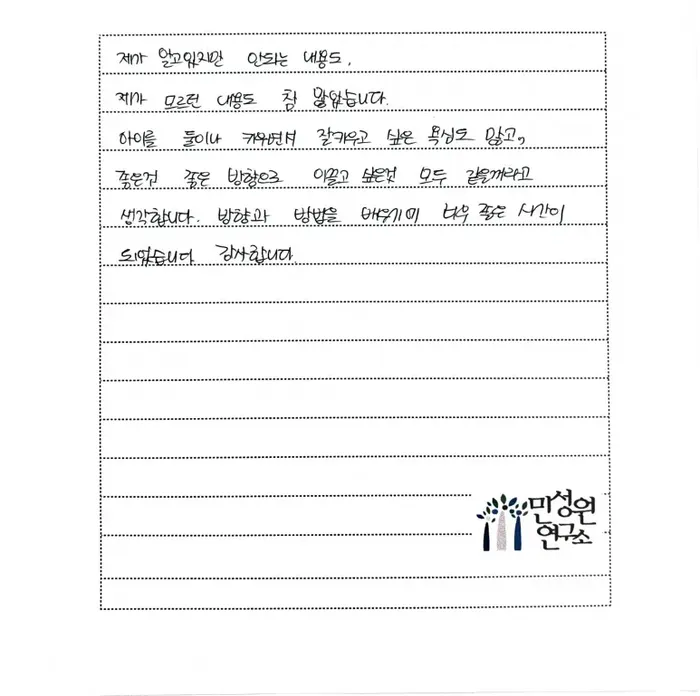 제가 알고있지만 안되는 내용도,
제가 모르던 내용도 참 많았습니다.
아이를 둘이나 키워면서 잘키우고 싶은 욕심도 많고,
좋은건 좋은 방향으로 이끌고 싶은것 모두 같을꺼라고
생각합니다. 방향과 방법을 배우기에 너무 좋은 시간이
되었습니다 감사합니다.
민성원
연구소